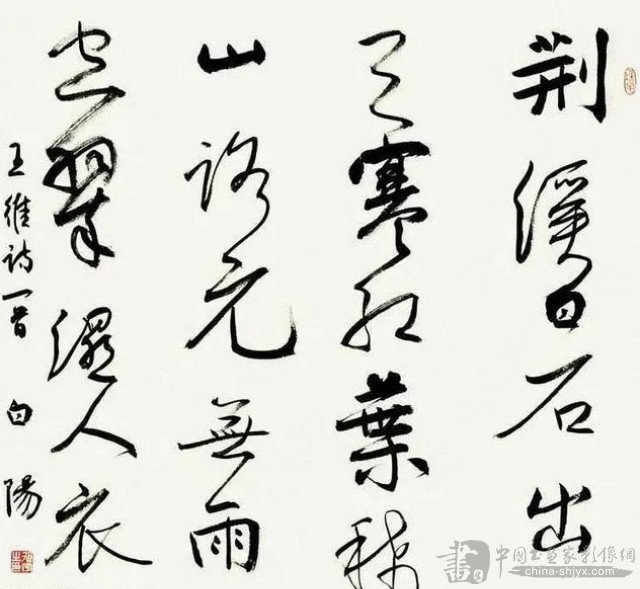 荆溪白石出
天寒红葉稀
山路元無雨
空翠濕人衣
王維诗一首 白陽
中国书画家影像網
china-shjyx.com